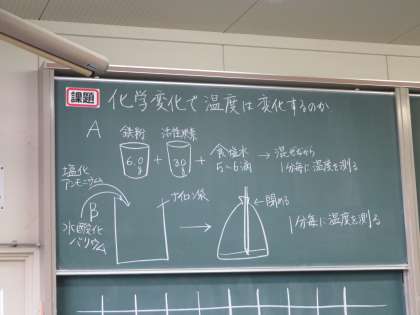 課題 化学変化で温度は変化するのか
A
鉄粉 活性炭素
6.0g + 3.0g + 食塩水 5~6滴 → 混ぜながら 1分毎に温度を測る
塩化アンモニウム
B
水酸化バリウム
ナイロン袋
→
← 閉める
1分毎に温度を測る